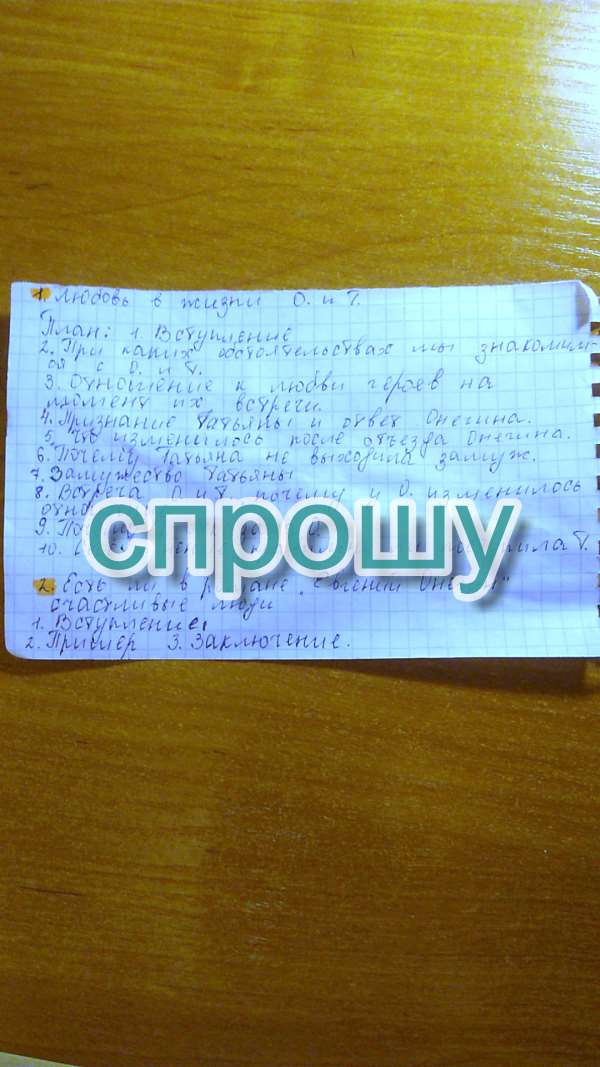 1. Любовь в жизни О. и Т.
План: 1. Вступление
2. При каких обстоятельствах мы знакомим-
ся с О. и Т.
3. Отношение к любви героев на
момент их встречи.
4. Признание Татьяны и ответ Онегина.
5. Что изменилось после отъезда Онегина.
6. Почему Татьяна не выходила замуж.
7. Замужество Татьяны
8. Встреча О и Т, почему и О. изменилось
9.
10.
спрошу
2. Есть ли в романе "Евгений Онегин"
счастливые люди
1. Вступление,
2. Пример 3. Заключение.